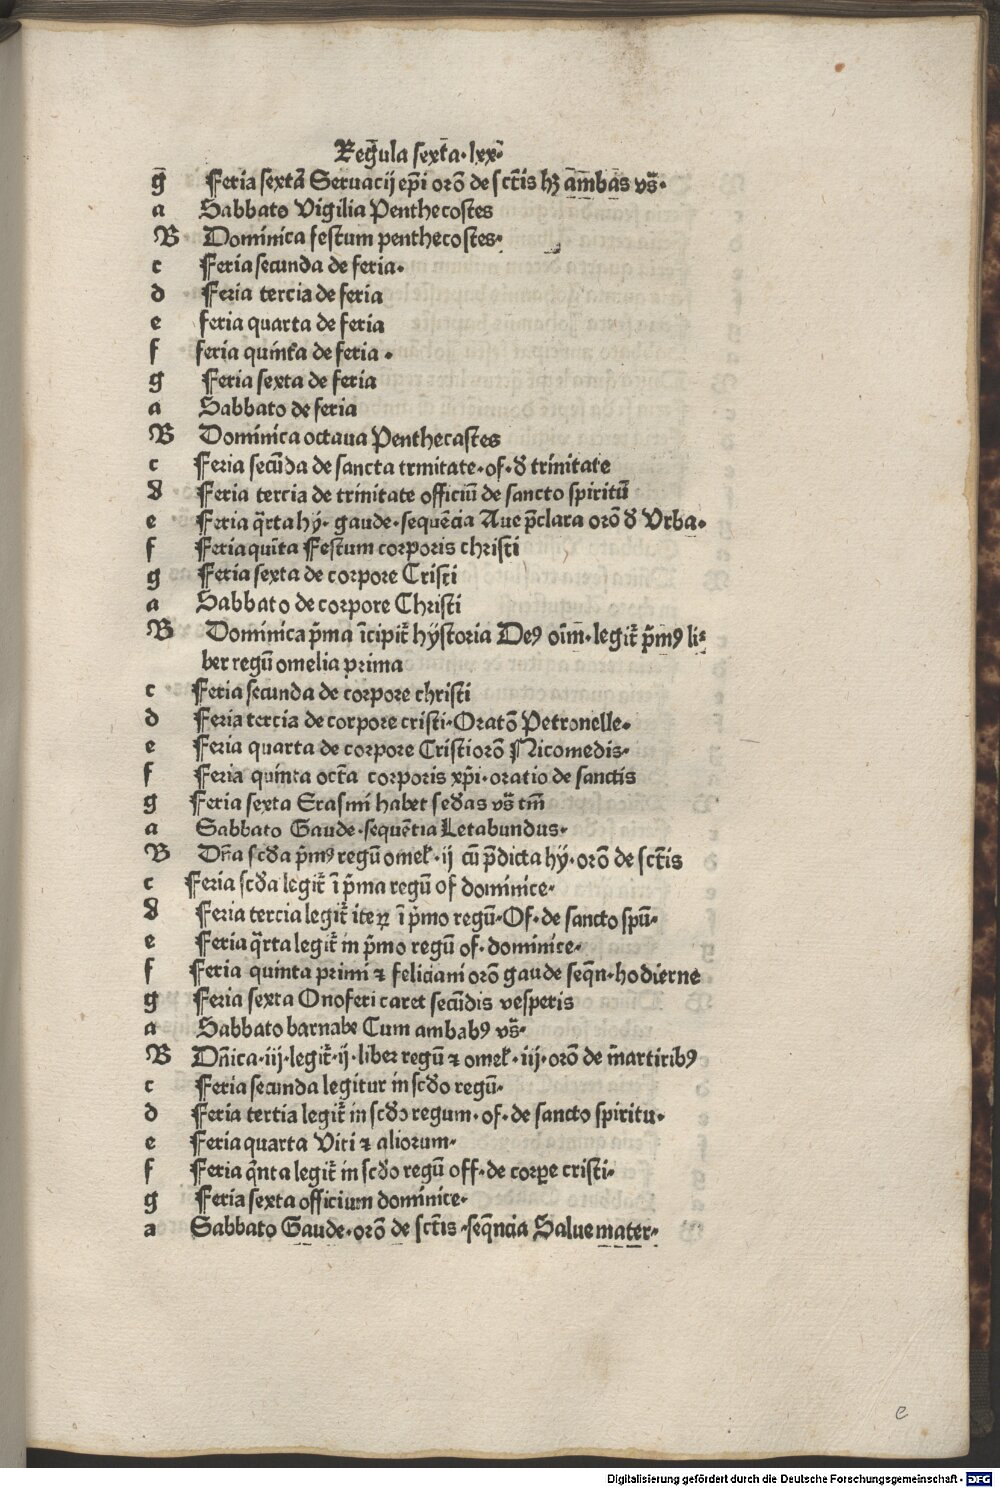 Reḡula sexta·lxx·
g̅ Feria sextā Seruacij ep̄i orō de sctīs hʒ āmbās vs̄·
a Sabbato Vigilia Penthecostes
B Dominica festum penthecostes·
c Feria secunda de feria·
d Feria tercia de feria
e feria quarta de feria
f feria quinta de feria ·
g Feria sexta de feria
a Sabbato de feria
B Dominica octaua Penthecastes
c Feria secūda de sancta trinitate·of·d̄ trinitate
d Feria tercia de trinitate officiū de sancto spiritū
e Feria q̄rta hy· gaude·sequēcia Aue p̄clara orō d̄ Vrba·
f Feria quīta Festum corporis christi
g Feria sexta de corpore Cristi
a Sabbato de corpore Christi
B Dominica p̄ma īcipit̄ hystoria Deꝰ oīm·legit̄ p̄mꝰ li⸗
ber regū omelia prima
c Feria secunda de corpore christi
d Feria tercia de corpore cristi·Oratō Petronelle·
e Feria quarta de corpore Cristiorō Nicomedis·
f Feria quinta octā corporis xp̄i·oratio de sanctis
g Feria sexta Erasmi habet sed̄as vs̄ tm̄
a Sabbato Gaude·sequētia Letabundus·
B Dn̄a scd̄a p̄mꝰ regū omel̄·ij cū p̄dicta hy·orō de sctīs
c Feria scd̄a legit̄ ī p̄ma regū of dominice·
d Feria tercia legit̄ iteꝝ ī p̄mo regū·Of·de sancto spū·
e Feria q̄rta legit̄ in p̄mo regū of·dominice·
f Feria quinta primi ⁊ feliciani orō gaude seq̄n·hodierne
g Feria sexta Onoferi caret secūdis vesperis
a Sabbato barnabe Cum ambabꝰ vs̄·
B Dn̄ica·iij·legit̄·ij·liber regū ⁊ omel̄·iij·orō de m̄artiribꝰ
c Feria secunda legitur in scd̄o regū·
d Feria tertia legit̄ in scd̄o regum·of·de sancto spiritu·
e Feria quarta Viti ⁊ aliorum·
f Feria q̄nta legit̄ in scd̄o regū off·de corꝑe cristi·
g Feria sexta officium dominice·
a Sabbato Gaude·orō de sctīs·seq̄ncia Salue mater·
e
Digitalisierung gefördert durch die Deutsche Forschungsgemeinschaft - DFG